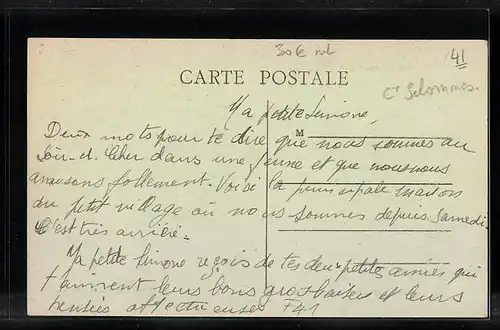 30€
41
CARTE POSTALE
Cⁿ Selommes.
Ma petite Simone,
M
Deux mots pour te dire que nous sommes au
Loir-et-Cher dans une ferme et que nous nous
amusons follement. Voici la principale maison
du petit village où nous sommes depuis Samedi.
C'est très arriéré.
Ma petite Simone reçois de tes deux petites amies qui
t'aiment leurs bons gros baisers et leurs
pensées affectueuses F41